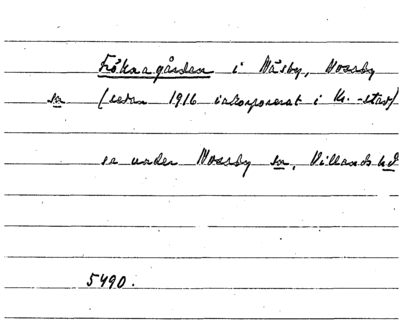 Fröknagården i Näsby, Nosaby
sn (sedan 1916 inkorporerat i Kr.-stad)
se under Nosaby sn, Villands hd
5490.